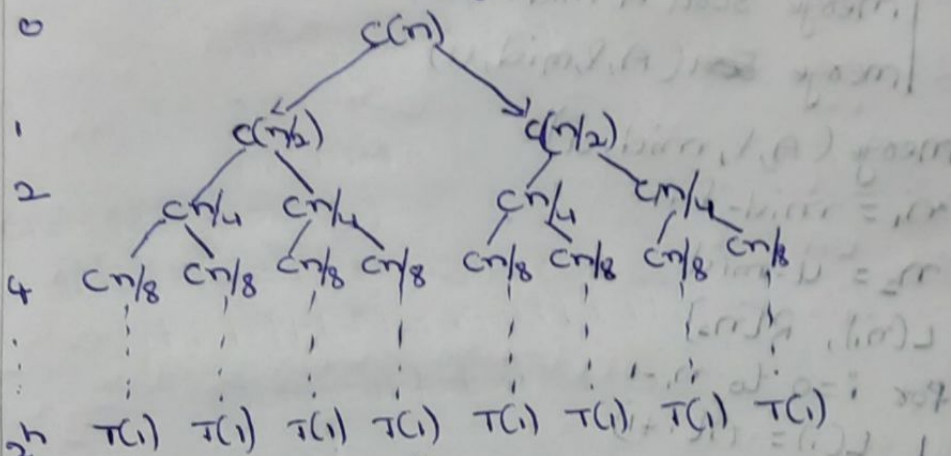 0 C(n)
1 C(n/2) C(n/2)
2 Cn/4 Cn/4 Cn/4 Cn/4
4 Cn/8 Cn/8 Cn/8 Cn/8 Cn/8 Cn/8 Cn/8 Cn/8
2^h T(1) T(1) T(1) T(1) T(1) T(1) T(1) T(1)